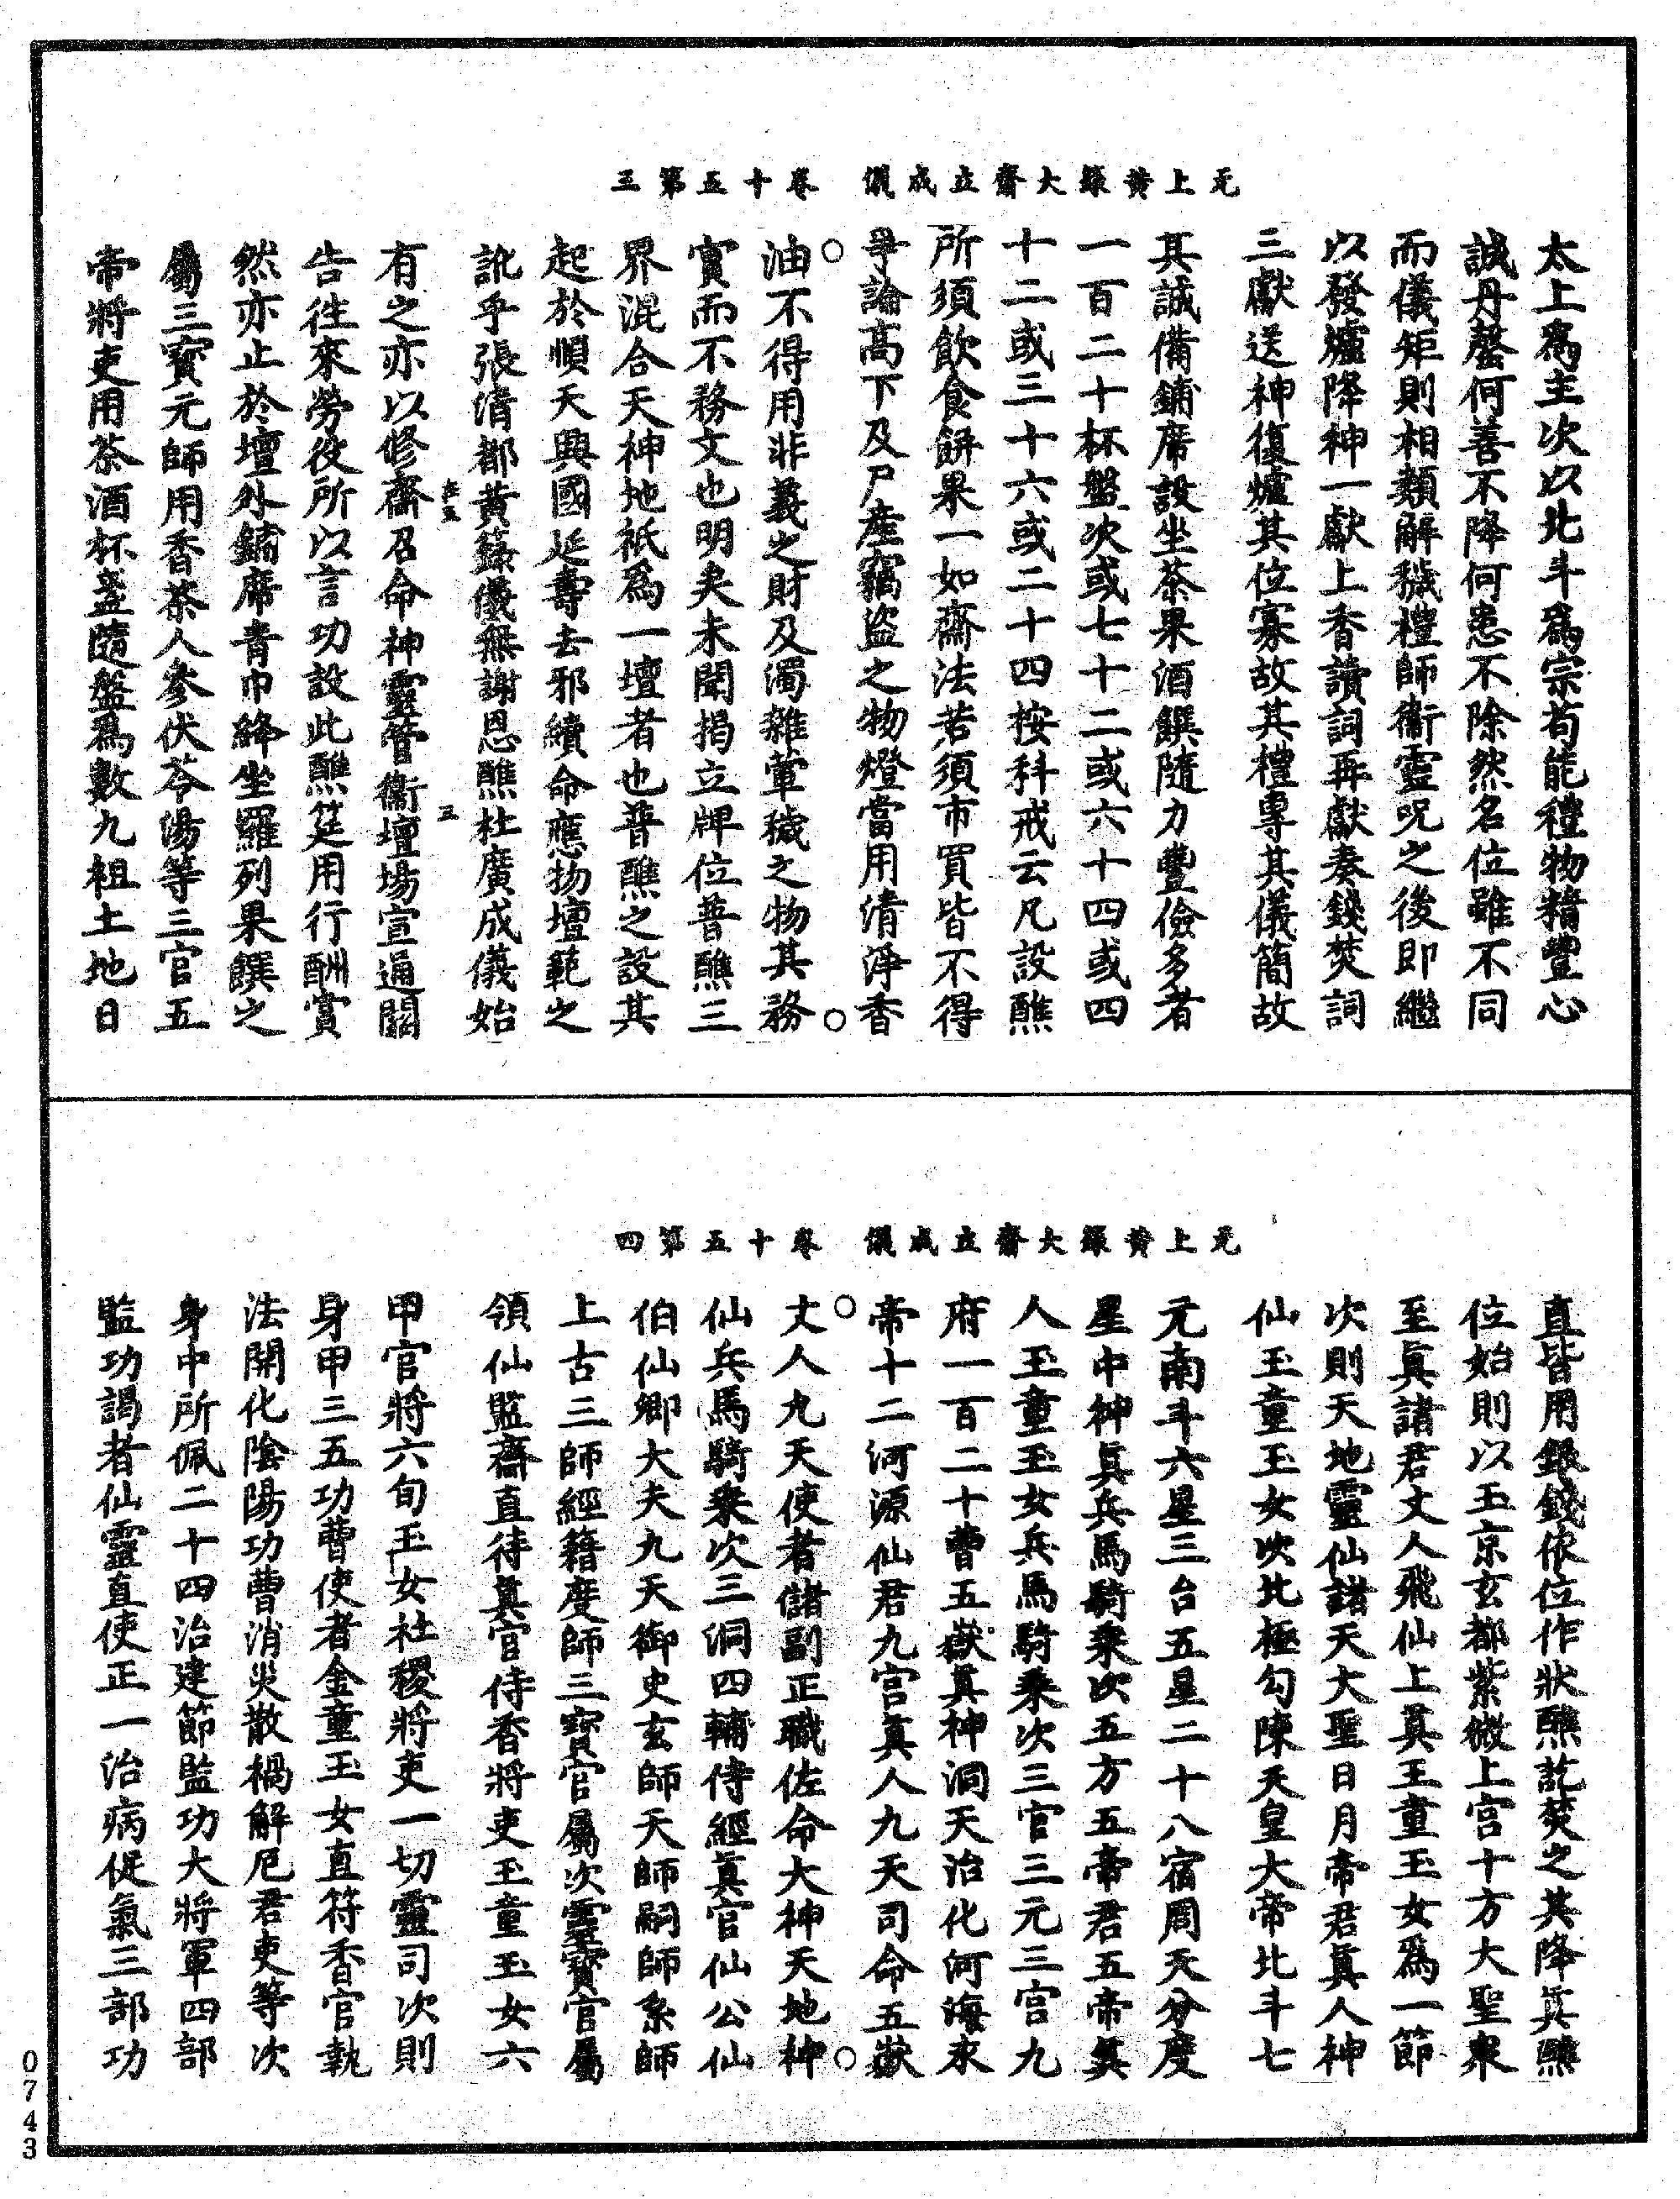 无上黃籙大齋立成儀　卷十五第三
太上爲主次以北斗爲宗苟能禮物精豐心
誠丹罄何善不降何患不除然名位雖不同
而儀矩則相類解穢禮師衞靈呪之後即繼
以發爐降神一獻上香讀詞再獻奏錢焚詞
三獻送神復爐其位寡故其禮專其儀簡故
其誠備鋪席設坐茶果酒饌隨力豐儉多者
一百二十杯盤次或七十二或六十四或四
十二或三十六或二十四按科戒云凡設醮
所須飲食餅果一如齋法若須市買皆不得
爭論高下及尸產竊盜之物燈當用清淨香
油不得用非義之財及濁雜葷穢之物其務
實而不務文也明矣未聞揭立牌位普醮三
界混合天神地祇爲一壇者也普醮之設其
起於順天興國延壽去邪續命應物壇範之
訛乎張清都黃籙儀無謝恩醮杜廣成儀始
有之亦以修齋召命神靈管衞壇場宣通關
告往來勞役所以言功設此醮筵用行酬賞
然亦止於壇外鋪席青巾絳坐羅列果饌之
屬三寳元師用香茶人參伏苓湯等三官五
帝將吏用茶酒杯盞隨盤爲數九祖土地日
无上黃籙大齋立成儀　卷十五第四
直皆用銀錢依位作狀醮訖焚之其降眞醮
位始則以玉京玄都紫微上宮十方大聖衆
至眞諸君丈人飛仙上眞玉童玉女爲一節
次則天地靈仙諸天大聖日月帝君眞人神
仙玉童玉女次北極勾陳天皇大帝北斗七
元南斗六星三台五星二十八宿周天分度
星中神眞兵馬騎乘次五方五帝君五帝眞
人玉童玉女兵馬騎乘次三官三元三宮九
府一百二十曹五嶽眞神洞天治化河海水
帝十二河源仙君九宮眞人九天司命五嶽
丈人九天使者儲副正職佐命大神天地神
仙兵馬騎乘次三洞四輔侍經眞官仙公仙
伯仙卿大夫九天御史玄師天師嗣師系師
上古三師經籍度師三寳官屬次靈寳官屬
領仙監齋直待眞官侍香將吏玉童玉女六
甲官將六旬玉女社稷將吏一切靈司次則
身甲三五功曹使者金童玉女直符香官執
法開化陰陽功曹消災散禍解厄君吏等次
身中所佩二十四治建節監功大將軍四部
監功謁者仙靈直使正一治病促氣三部功
0743